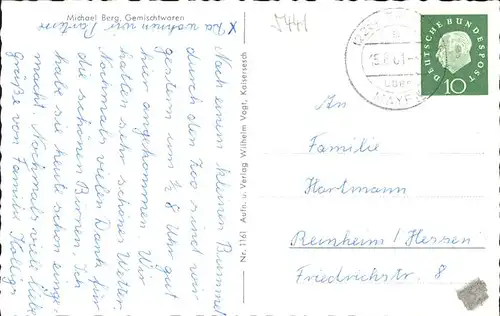 Michael Berg, Gemischtwaren
x Da wohnen wir Parterre
Nach einem kleinen Bummel
durch den Zoo sind wir
gestern um ½ 8 Uhr gut
hier angekommen. Wir
hatten sehr schönes Wetter.
Nochmals vielen Dank für
die schönen Birnen. Ich
habe sie heute schon einge-
macht. Nochmals viele liebe
Grüße von Familie
Nr. 1161 Aufn. u. Verlag Wilhelm Vogt, Kaisersesch
5441
über
MAYEN
DEUTSCHE BUNDESPOST
10
An
Familie
Hartmann
Reinheim / Hessen
Friedrichstr. 8